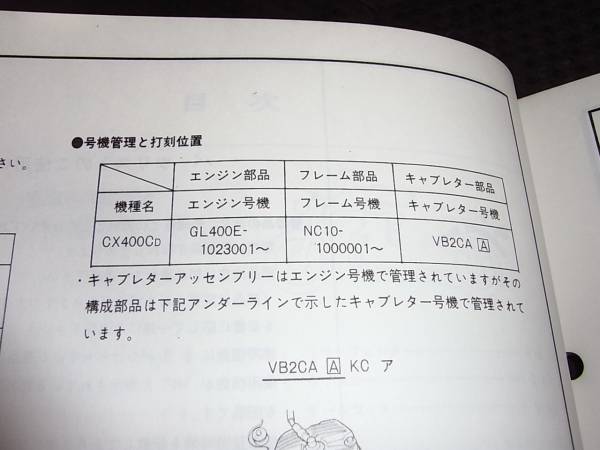 さい。
●号機管理と打刻位置
エンジン部品 フレーム部品 キャブレター部品
機種名 エンジン号機 フレーム号機 キャブレター号機
CX400CD GL400E-1023001〜 NC10-1000001〜 VB2CA A
・キャブレターアッセンブリーはエンジン号機で管理されていますがその
構成部品は下記アンダーラインで示したキャブレター号機で管理されて
います。
VB2CA A KC ア